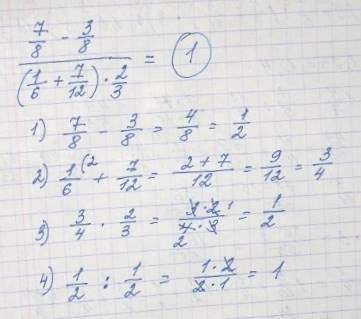 (7/8 - 3/8) / ((1/6 + 7/12) · 2/3) = 1
1) 7/8 - 3/8 = 4/8 = 1/2
2) 1/6 (2 + 7/12 = (2 + 7)/12 = 9/12 = 3/4
3) 3/4 · 2/3 = (3 · 2 1)/(4 · 3 2) = 1/2
4) 1/2 : 1/2 = (1 · 2)/(2 · 1) = 1